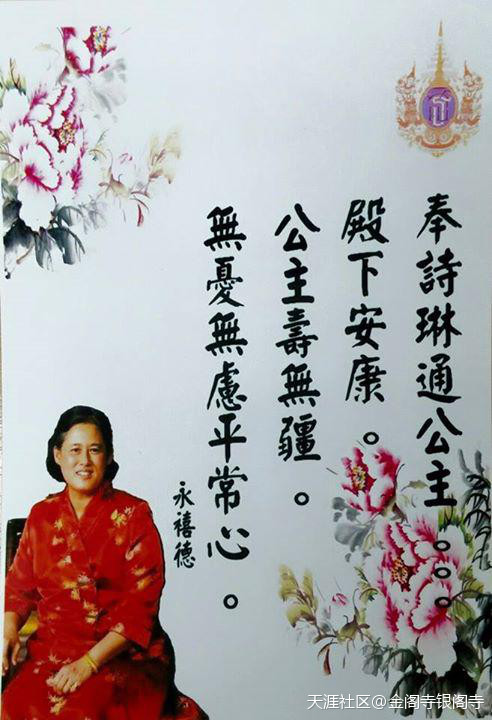 奉詩琳通公主。。。
殿下安康。
公主壽無疆。
無憂無慮平常心。
永禧德
天涯社区@金阁寺银阁寺